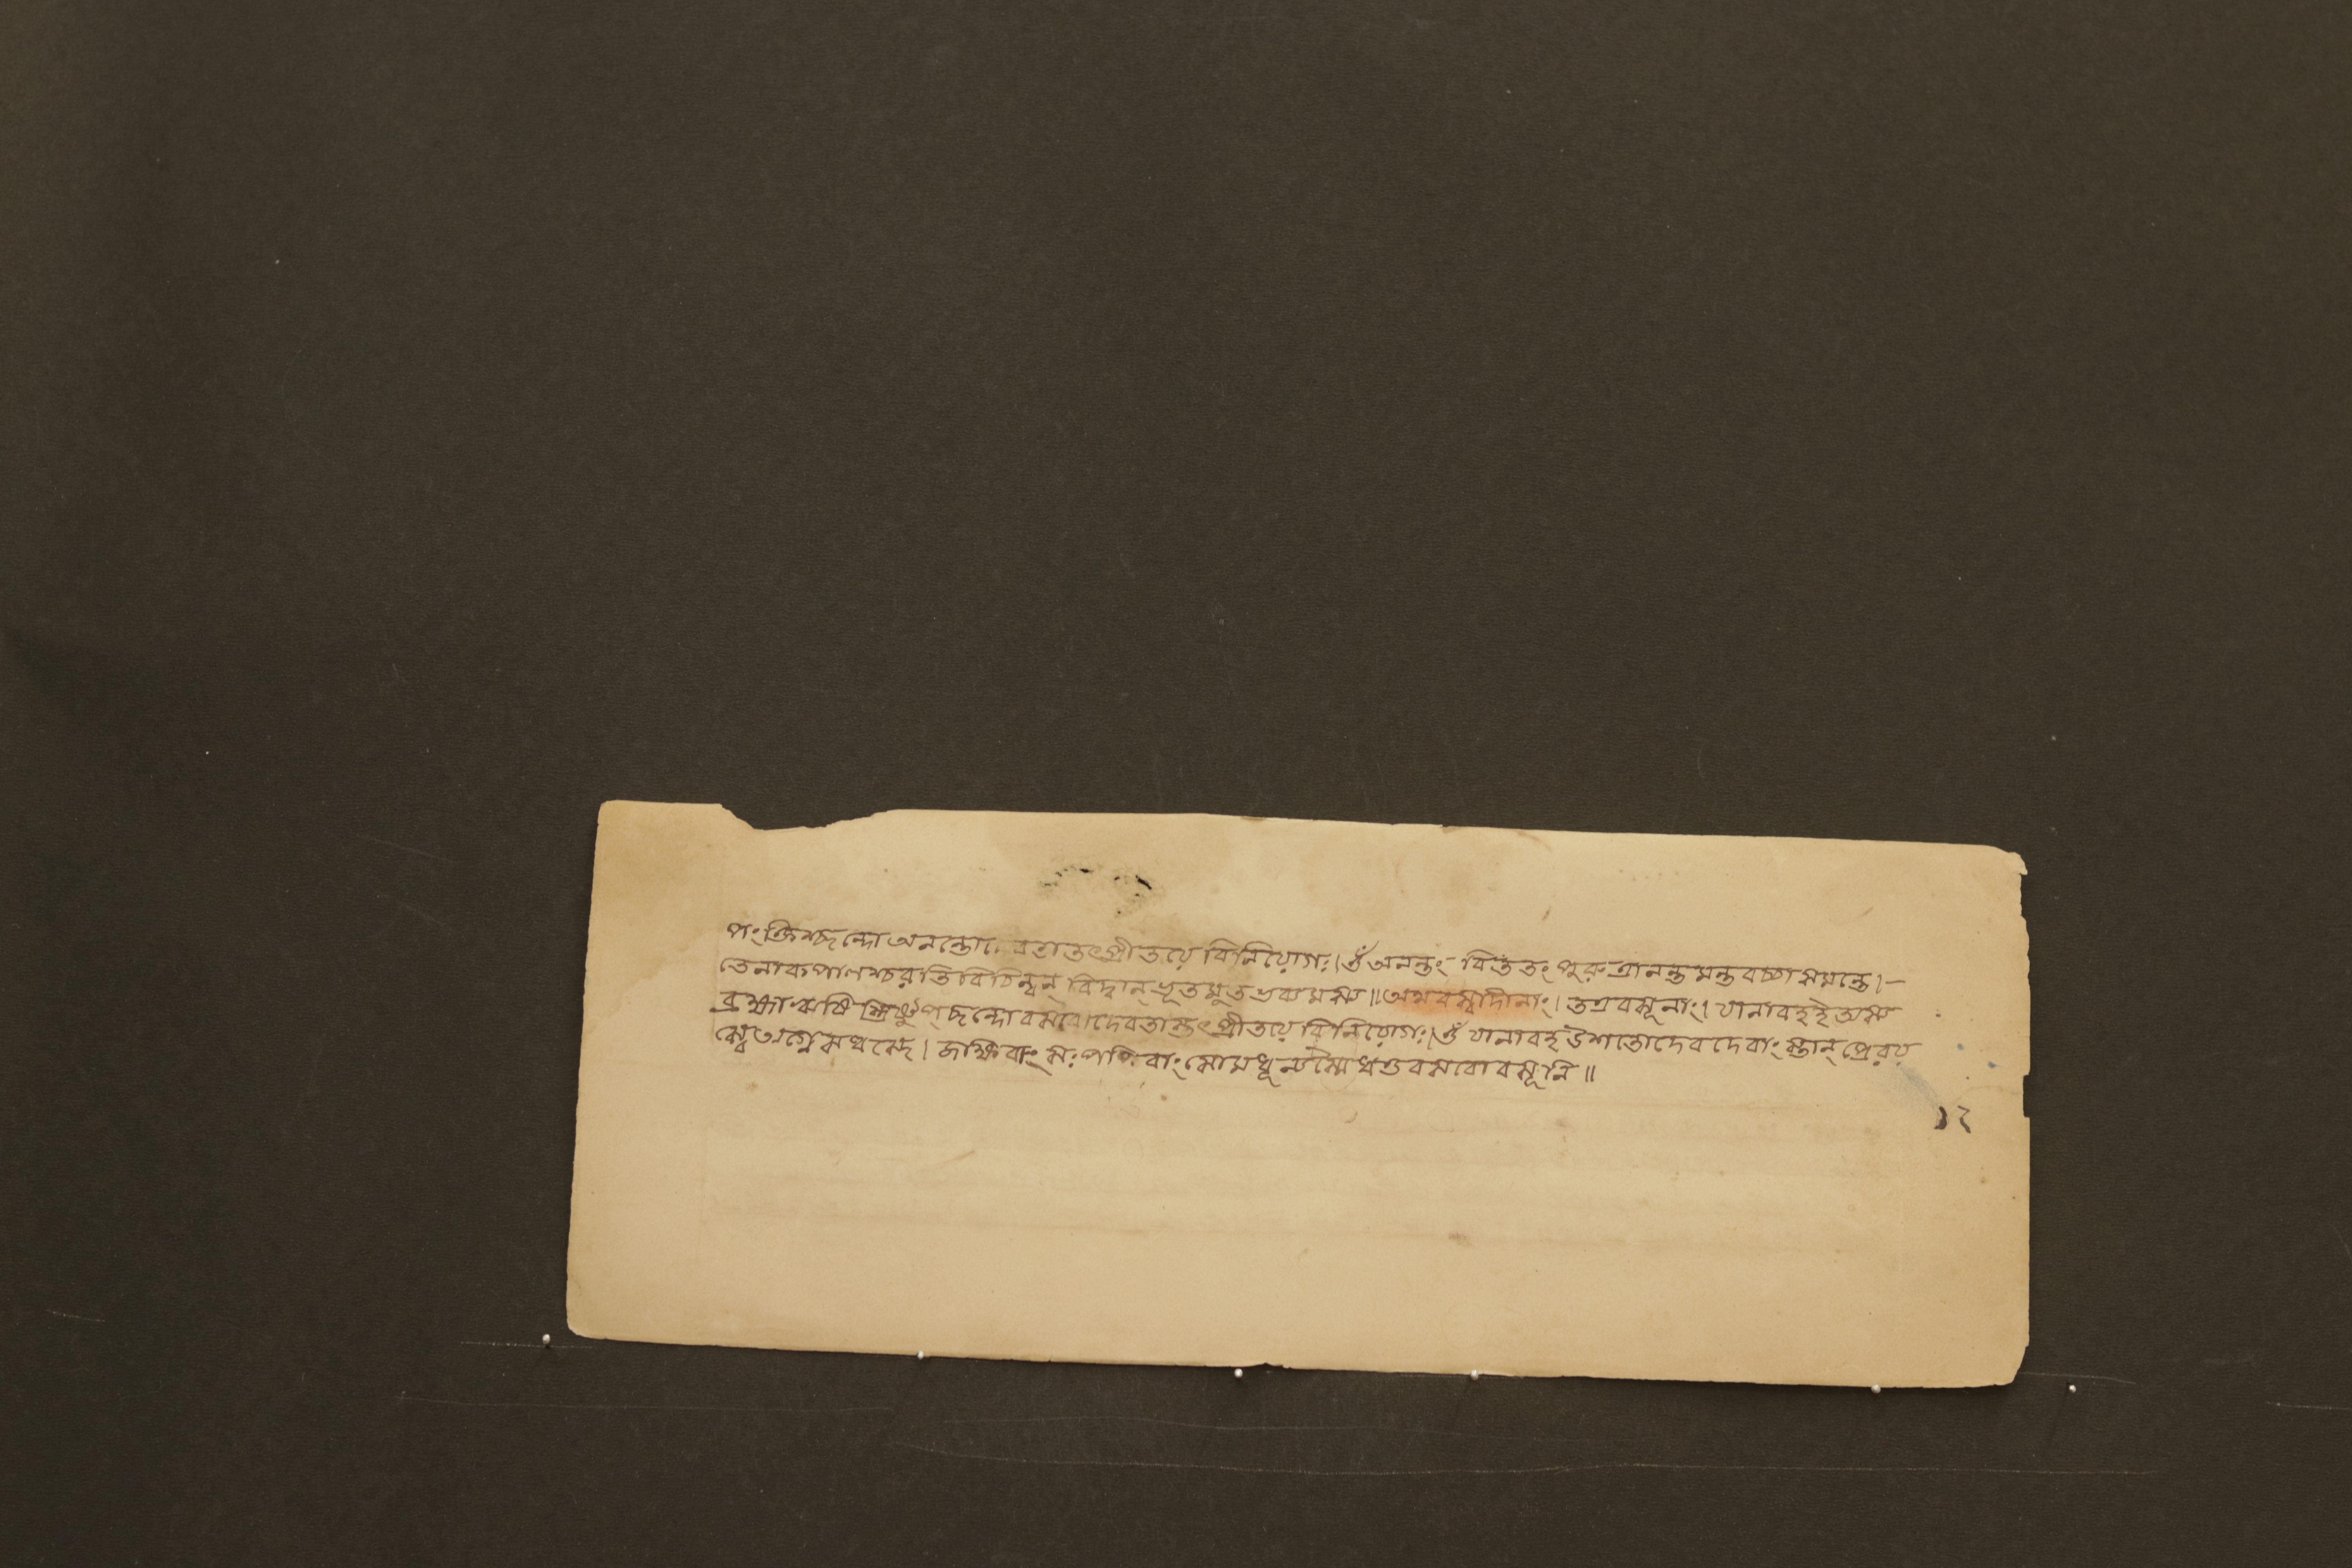 পংক্তিশ্ছন্দো অনন্তো দেবতা তৎপ্রীতয়ে বিনিয়োগঃ।ওঁ অনন্তং বিততং পুরুত্রানন্তমন্তবচ্চা সমন্তে।-
তেনাকপাণশ্চরতি বিচিন্বন্ বিদ্বান্ ভূতমুতভব্যমস্য॥অথবস্বাদীনাং। তত্রবসূনাং। যানাবহইঅস্য
ব্রহ্মাঋষি স্ত্রিষ্টুপ্ছন্দো বসবোদেবতাস্তৎ প্রীতয়ে বিনিয়োগঃ।ওঁ যানাবহ উশতোদেবদেবাং স্তান্ প্রেরয়
স্বে অগ্নেসধস্থে। জক্ষিবাং সঃ পপিবাং সোমধূন্যস্মৈধত্তবসবোবসূনি॥
১২